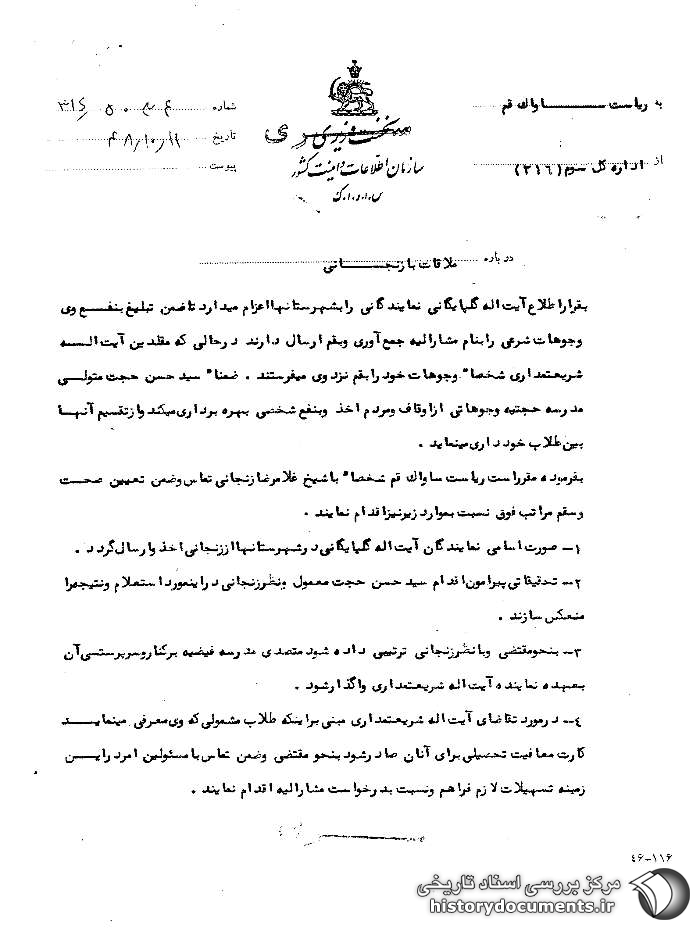 به ریاست ساواک قم
از اداره کل سوم (۳۱۶)
نخست وزیری
سازمان اطلاعات و امنیت کشور
س.ا.و.ا.ک
شماره
تاریخ ۴۸/۱۰/۱۱
پیوست
درباره ملاقات با زنجانی
بقرار اطلاع آیت اله گلپایگانی نمایندگانی را بشهرستانها اعزام میدارد تا ضمن تبلیغ بنفع وی
وجوهات شرعی را بنام مشارالیه جمع آوری و بقم ارسال دارند در حالی که مقلدین آیت الله
شریعتمداری شخصا" وجوهات خود را بقم نزد وی میفرستند . ضمنا" سید حسن حجت متولی
مدرسه حجتیه وجوهاتی از اوقاف و مردم اخذ وبنفع شخصی بهره برداری میکند و از تقسیم آنها
بین طلاب خود داری مینماید .
بفرموده مقرر است ریاست ساواک قم شخصا" با شیخ غلامرضا زنجانی تماس و ضمن تعیین صحت
و سقم مراتب فوق نسبت بموارد زیر نیز اقدام نمایند .
۱- صورت اسامی نمایندگان آیت اله گلپایگانی در شهرستانها از زنجانی اخذ و ارسال گردد .
۲- تحقیقاتی پیرامون اقدام سید حسن حجت معمول و نظر زنجانی در اینمورد استعلام و نتیجه را
منعکس سازند .
۳- بنحو مقتضی و با نظر زنجانی ترتیبی داده شود متصدی مدرسه فیضیه برکنار و سرپرستی آن
بعهده نماینده آیت اله شریعتمداری واگذار شود .
۴- در مورد تقاضای آیت اله شریعتمداری مبنی بر اینکه طلاب مشمولی که وی معرفی مینماید
کارت معافیت تحصیلی برای آنان صادر شود بنحو مقتضی و ضمن تماس با مسئولین امر در این
زمینه تسهیلات لازم فراهم و نسبت بدرخواست مشارالیه اقدام نمایند .
۴۶-۱۱۶
مرکز بررسی اسناد تاریخی
historydocuments.ir